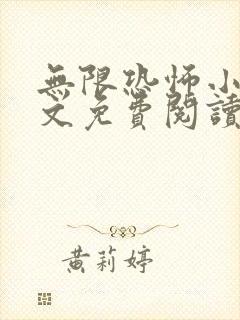 無限恐怖小
文免費閱讀
黃莉婷